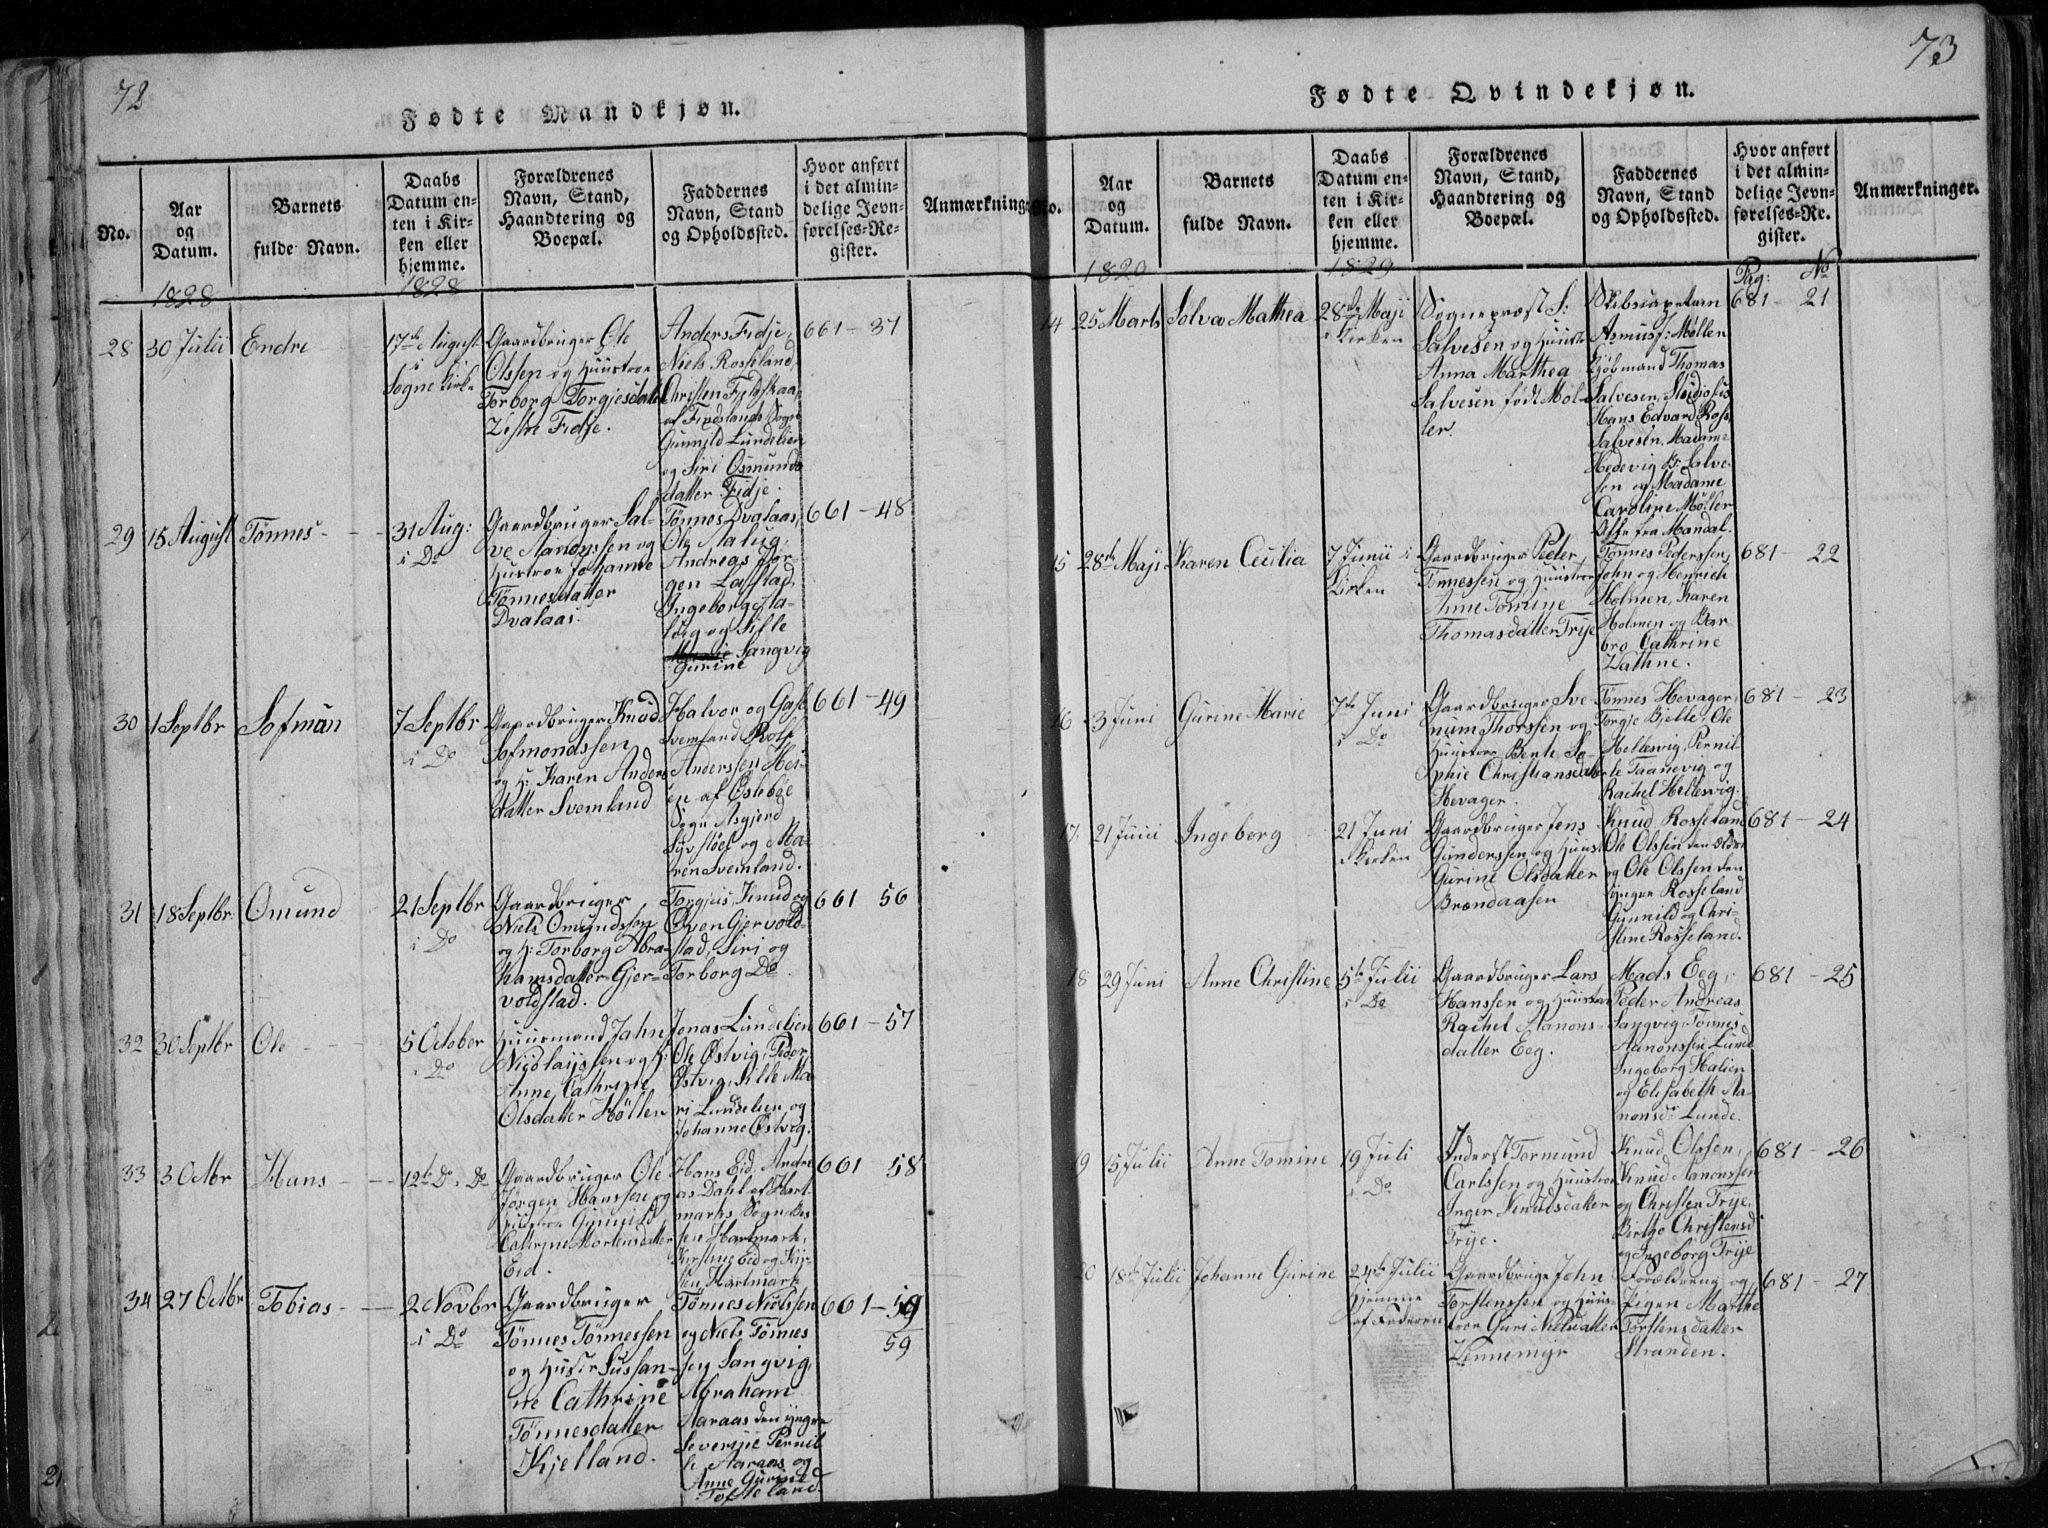 72
Fødte Mandkjøn.
No.
Aar
og
Datum.
Barnets
fulde Navn.
Daabs
Datum en-
ten i Kir-
ken eller
hjemme.
Forældrenes
Navn, Stand,
Haandtering og
Boepæl.
Faddernes
Navn, Stand
og Opholdssted.
Hvor anført
i det almin-
delige Jevn-
førelses-Re-
gister.
Anmærkninge
1828
1828
28
30 Julii
Endre
17de August
i
Sogne Kirke
Gaardbruger Ole
Olssen og Huustroe
Torborg Torgjesdatter
Fidje.
Anders Fidje,
Niels Rosseland,
Christen Fjeldskaa,
af Sogn
Gunnild Lundelien
og Siri Osmunds
datter Fidje.
661 - 37
29
15 August
Tønnes
31 Aug:
i Do
Gaardbruger Sal-
ve Aanonssen og
Hustroe Johanne
Tønnesdatter
Dvalaas.
Tønnes Dvalaas,
Ole Stalug,
Andreas Jør-
gen Lastad,
Ingeborg Sta-
lug og Sille
Sangvig
Gurine
661 - 48
30
1 Septbr
Sofmun
7 Septbr
i Do
Gaardbruger Knud
Sofmondssen
og H: Karen Anders
datter Svemland
Halvor og
Svemland Rolf
Anderssen Hei-
en af Oslebøe
Sogn Asgjerd
og Ma-
ren Svemland.
661 - 49
31
18 Septbr
Omund
21 Septbr
i Do
Gaardbruger
Niels Omundssen
og H: Torborg Abra-
hamsdatter Gjer-
voldstad.
Torgius, Knud og
Sven Gjervold-
stad, Siri og
Torborg Do.
661 56
32
30 Septbr
Ole
5 October
i Do
Huusmand Jahn
Nicolayssen og H:
Anne Cathrine
Olsdatter Höllen
Jonas Lundelien
Ole Østvig, Peder
Østvig, Sille Ma
ri Lundelien og
Johanne Østvig.
661 - 57
33
3 Octbr
Hans
12te Do i Do
Gaardbruger Ole
Jørgen Hanssen og
Huustroe Gunnild
Cathrine Mortensdatter
Eid.
Hans Eid, Andre
as Dahl af Hart-
marks Sogn,
Hartmark,
Kirstine Eid og Kir-
Hartmark
661 58
34
27 Octbr
Tobias
2 Novbr
i Do
Gaardbruger
Tønnes Tønnessen
og Hustr Sussan-
ne Cathrine
Tønnesdatter
Kjelland.
Tønnes Nielssen
og Niels Tønnes
sen Sangvig,
Abraham
Aaraas den yngre
Severine Pernil
le Aaraas og
Anne Gurine
Tofteland.
661 - 59
59
73
Fødte Qvindekjøn.
No.
Aar
og
Datum.
Barnets
fulde Navn.
Daabs
Datum en-
ten i Kir-
ken eller
hjemme.
Forældrenes
Navn, Stand,
Haandtering og
Boepæl.
Faddernes
Navn, Stand
og Opholdssted.
Hvor anført
i det almin-
delige Jevn-
førelses-Re-
gister.
Anmærkninger.
1829
1829
Pag: No
14
25 Marts
Solva Mathea
28de Maji
i Kirken
Sognepræst S:
Salvesen og Huustr
Anna Marthea
Salvesen født Møl-
ler.
Skibscapetain
Asmus J: Møller
Kjøbmand Thomas
Salvesen, Studiosus
Hans Edvard Ross
Salvesen, Madame
Hedevig Salve-
sen og Madame
Caroline Møller
Alle fra Mandal.
681 - 21
15
28de Maji
Karen Cecilia
7 Junii i
Kirken
Gaardbruger Peder
Tønnessen og Huustroe
Anne Tomine
Thomasdatter Trÿe
Tønnes Pederssen,
John og Henrich
Holmen, Karen
Holmen og Bar-
bro Cathrine
Vathne.
681 - 22
16
3 Juni
Gurine Marie
7de Juni
i Do
Gaardbruger Sve
num Thorssen og
Huustroe Bente So-
phie Christiansdatter
Hevager.
Tønnes Hevager,
Torgje Bjelle, Ole
Hellesvig, Pernil
le Taanevig og
Rachel Hellesvig.
681 - 23
17
21 Junii
Ingeborg
21 Juni
i Kirken
Gaardbruger Jens
Gunderssen og Huust
Gurine Olsdatter
Brændaasen
Knud Rosseland
Ole Olssen den ældre
og Ole Olssen den
yngre Rosseland
Gunnild og Chri-
stine Rosseland.
681 - 24
18
29 Juni
Anne Christine
5te Julii
i Do
Gaardbruger Lars
Hanssen og Huustroe
Rachel Aanons-
datter Eeg.
Mads Eeg,
Peder Andreas
Sangvig, Tønnes
Aanonssen Lunde
Ingeborg Halien
og Elisabeth Aa-
nonsdr Lunde.
681 - 25
19
15 Julii
Anne Tomine
19 Juli
i Do
Inderst Tormund
Carlssen og Huustroe
Inger Nicolsdatter
Trije.
Knud Olssen,
Knud Aanonssen
og Christen Trije,
Birthe Christensd
og Ingeborg Trije
681 - 26
20
18de Julii
Johanne Gurine
24de Julii
hjemme
af Faderen
Gaardbruge John
Torstenssen og Huus-
troe Guri Nielsdatter
Lennemyr
Forældrene og
Pigen Marthe
Torstensdatter
Stranden.
681 - 27